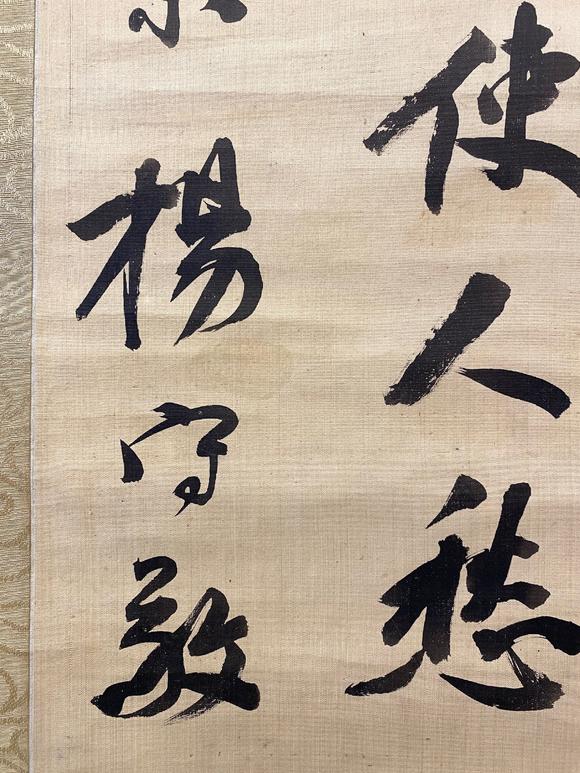 使人愁
楊守敬